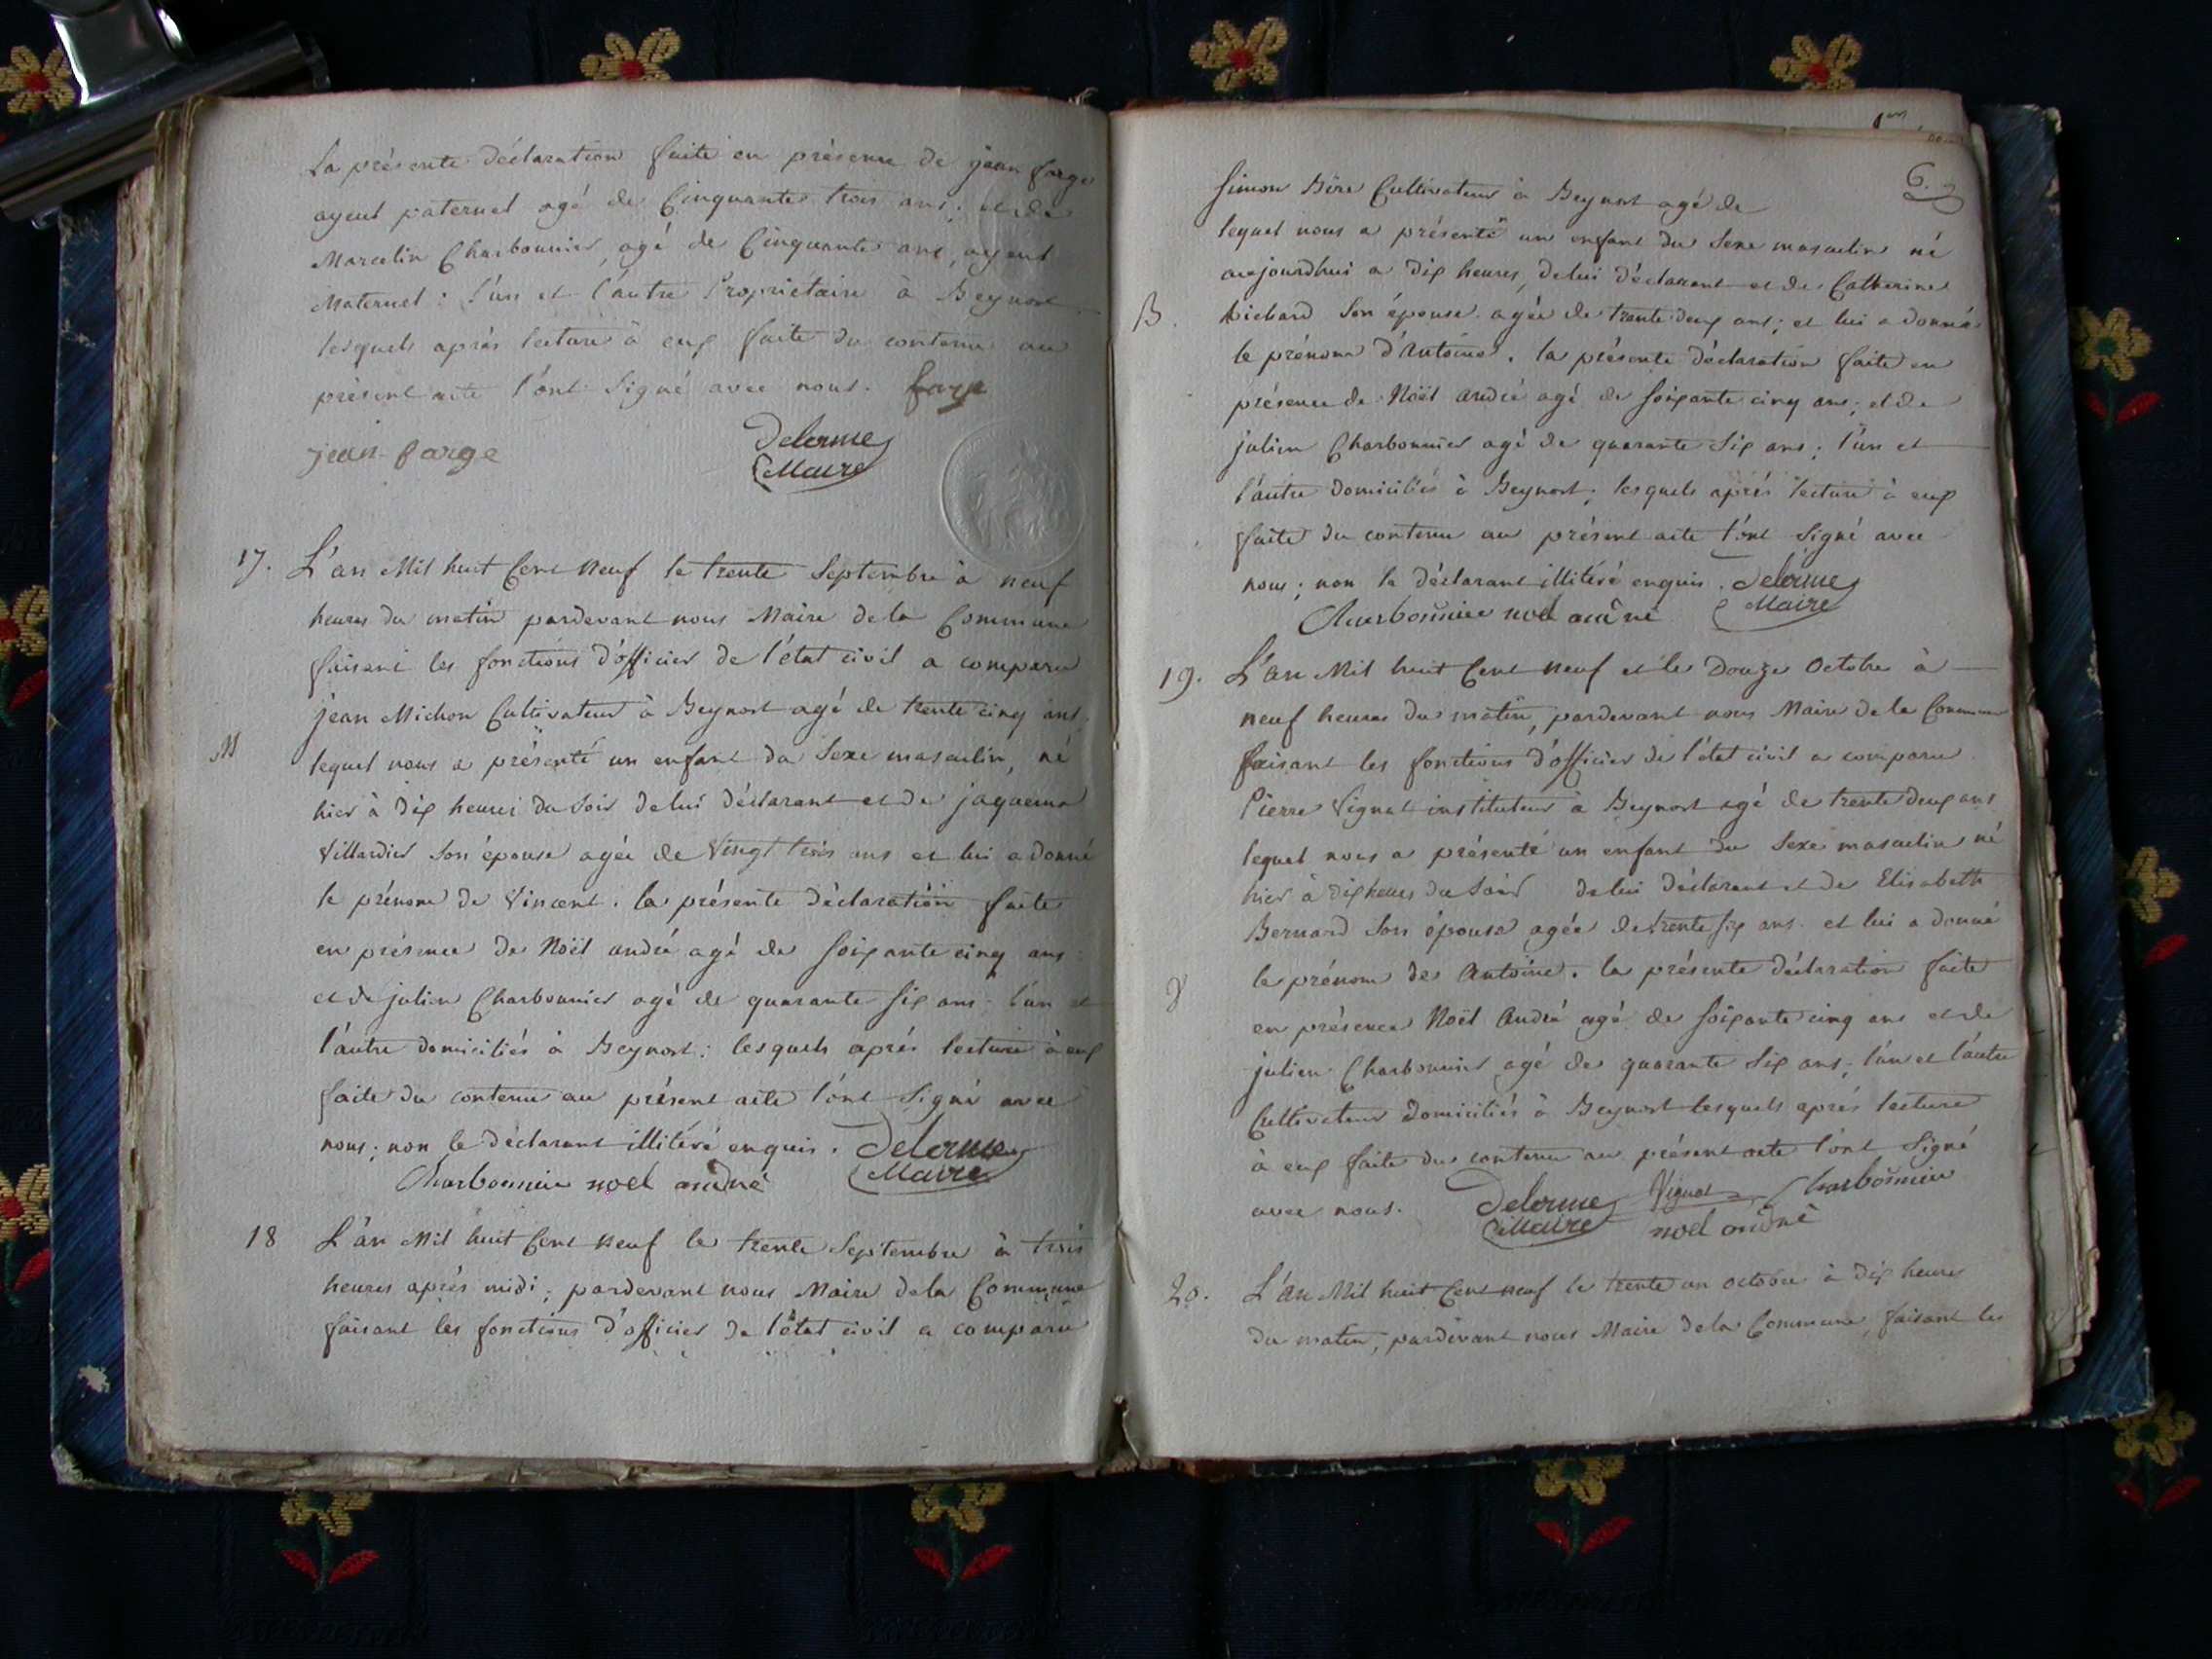 La présente déclaration faite en présence de jean farge
ayeul paternel agé de Cinquante trois ans; et de
Marcelin Charbonnier, agé de Cinquante ans, ayeul
Maternel: l'un et l'autre Propriétaire à Beynost
lesquels aprés lecture à eux faite du contenu au
présent acte l'ont Signé avec nous. farge
jean farge Delorme
Maire
17. L'an Mil huit Cent Neuf le trente Septembre à neuf
heures du matin pardevant nous Maire dela Commune
faisant les fonctions d'officier de l'état civil a comparu
jean Michon Cultivateur à Beynost agé de trente cinq ans,
M lequel nous a présenté un enfant du Sexe masculin, né
hier à dix heures du Soir delui déclarant et de jaquema
Villardier Son épouse agée de Vingt trois ans et lui a donné
le prénom de Vincent. la présente déclaration faite
en présence de Noël andré agé de soixante cinq ans
et de julien Charbonnier agé de quarante Six ans; l'un et
l'autre domiciliés à Beynost: lesquels aprés lecture à eux
faite du contenu au présent acte l'ont Signé avec
nous; non le déclarant illitéré enquis. Delorme
Charbonnier noel andré Maire
18 L'an Mil huit Cent Neuf le trente Septembre à trois
heures aprés midi; pardevant nous Maire dela Commune
faisant les fonctions d'officier de l'état civil a comparu
6.
Simon Cultivateur à Beynost agé de
lequel nous a présenté un enfant du Sexe masculin né
aujourdhui a dix heures, delui déclarant et de Catherine
B. Son épouse agée de trente deux ans; et lui a donné
le prénom d'Antoine. la présente déclaration faite en
présence de Noël andré agé de soixante cinq ans; et de
julien Charbonnier agé de quarante Six ans; l'un et
l'autre domiciliés à Beynost; lesquels aprés lecture à eux
faite du contenu au présent acte l'ont Signé avec
nous; non le déclarant illitéré enquis. Delorme
Charbonnier noel andré Maire
19. L'an Mil huit Cent Neuf et le Douze Octobre à
neuf heures du matin, pardevant nous Maire de la Commune
faisant les fonctions d'officier de l'état civil a comparu
Pierre Vignat instituteur à Beynost agé de trente deux ans
lequel nous a présenté un enfant du Sexe masculin né
hier à dix heures du Soir delui déclarant et de Elisabeth
Bernard Son épouse agée de trente six ans. et lui a donné
le prénom de Antoine. la présente déclaration faite
V en présence Noël André agé de soixante cinq ans et de
julien Charbonnier agé de quarante Six ans; l'un et l'autre
Cultivateur domiciliés à Beynost lesquels aprés lecture
à eux faite du contenu au présent acte l'ont Signé
avec nous. Delorme Vignat Charbonnier
Maire noel andré
20. L'an Mil huit Cent neuf le trente un octobre à dix heures
du matin, pardevant nous Maire dela Commune, faisant les